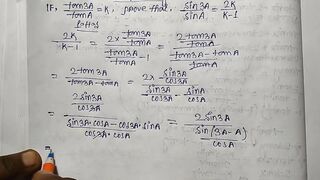 IF, tan3A/tanA = K, prove that, sin3A/sinA = 2K/K-1
2K/K-1 = 2× tan3A/tanA / tan3A/tanA - 1 = 2tan3A/tanA / tan3A-tanA/tanA
= 2tan3A / tan3A-tanA = 2× sin3A/cos3A / sin3A/cos3A - sinA/cosA
= 2sin3A/cos3A / sin3A·cosA-cos3A·sinA/cos3A·cosA = 2sin3A / sin(3A-A)/cosA
=